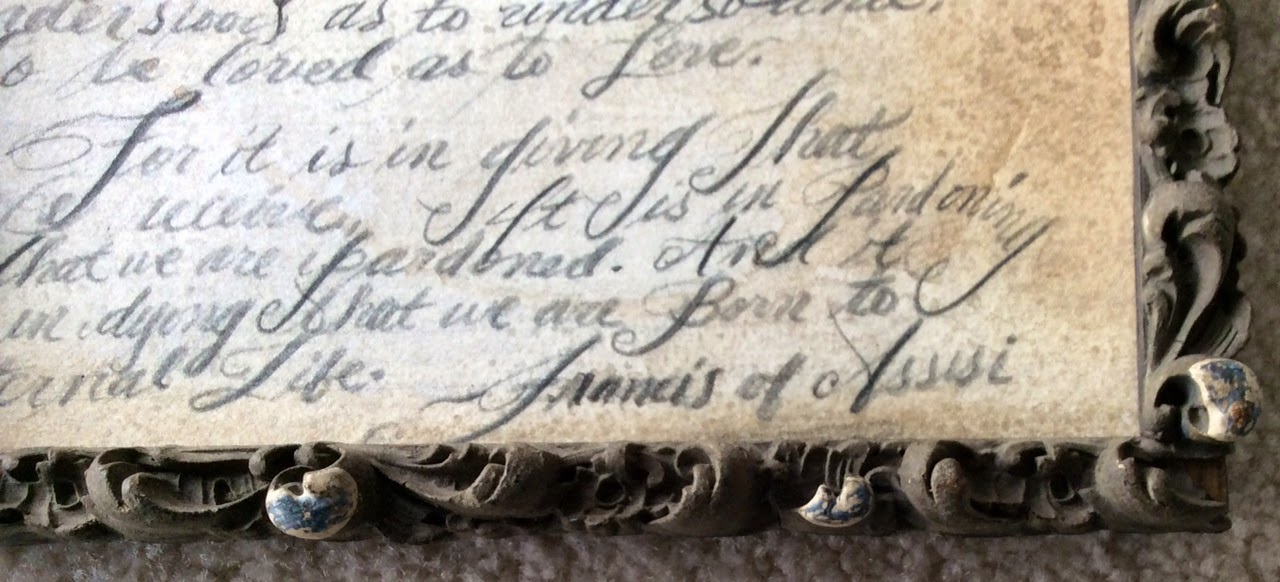 as to understand.
o be loved as to Love.
For it is in giving That
We receive, It is in Pardoning
that we are pardoned. And it
in dying that we are Born to
ternal Life. Francis of Assisi